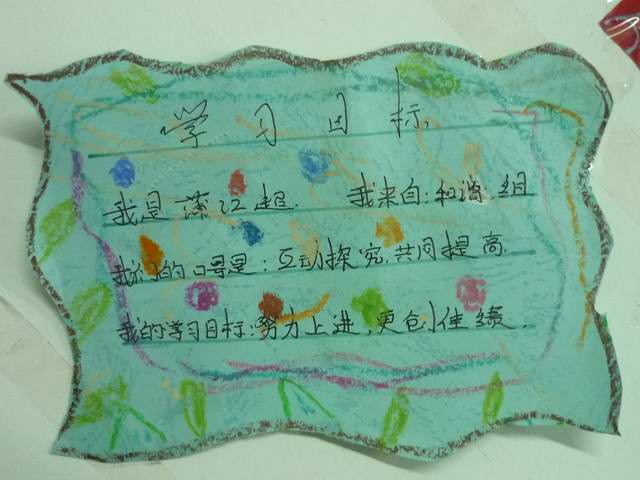 学习目标
我是 江超 我来自:和谐组
我们的口号是:互动探究,共同提高.
我的学习目标:努力上进,更创佳绩.